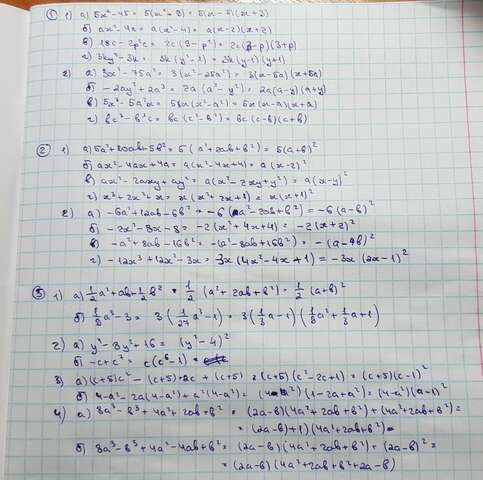 ① 1) а) 5x² - 45 = 5(x² - 9) = 5(x - 3)(x + 3)
б) ax² - 4a = a(x² - 4) = a(x - 2)(x + 2)
в) 18c - 2p²c = 2c(9 - p²) = 2c(3 - p)(3 + p)
г) 3ky² - 3k = 3k(y² - 1) = 3k(y - 1)(y + 1)
2) а) 3x² - 75a² = 3(x² - 25a²) = 3(x - 5a)(x + 5a)
б) - 2ay² + 2a³ = 2a(a² - y²) = 2a(a - y)(a + y)
в) 5x³ - 5a²x = 5x(x² - a²) = 5x(x - a)(x + a)
г) вc³ - в³c = вc(c² - в²) = вc(c - в)(c + в)
② 1) а) 5a² + 10aв + 5в² = 5(a² + 2aв + в²) = 5(a + в)²
б) ax² - 4ax + 4a = a(x² - 4x + 4) = a(x - 2)²
в) ax² - 2axy + ay² = a(x² - 2xy + y²) = a(x - y)²
г) x³ + 2x² + x = x(x² + 2x + 1) = x(x + 1)²
2) а) -6a² + 12aв - 6в² = -6(a² - 2aв + в²) = -6(a - в)²
б) -2x² - 8x - 8 = -2(x² + 4x + 4) = -2(x + 2)²
в) -a² + 8aв - 16в² = -(a² - 8aв + 16в²) = -(a - 4в)²
г) -12x³ + 12x² - 3x = -3x(4x² - 4x + 1) = -3x(2x - 1)²
③ 1) а) 1/2 a² + aв + 1/2 в² = 1/2 (a² + 2aв + в²) = 1/2 (a + в)²
б) 1/9 a³ - 3 = 3(1/27 a³ - 1) = 3(1/3 a - 1)(1/9 a² + 1/3 a + 1)
2) а) y⁴ - 8y² + 16 = (y² - 4)²
б) -c + c² = c(c⁶ - 1) =
3) а) (c + 5)c² - (c + 5)·2c + (c + 5) = (c + 5)(c² - 2c + 1) = (c + 5)(c - 1)²
б) 4 - a² - 2a(4 - a²) + a²(4 - a²) = (4 - a²)(1 - 2a + a²) = (4 - a²)(a - 1)²
4) а) 8a³ - в³ + 4a² + 2aв + в² = (2a - в)(4a² + 2aв + в²) + (4a² + 2aв + в²) =
= (2a - в) + 1)(4a² + 2aв + в²)
б) 8a³ - в³ + 4a² - 4aв + в² = (2a - в)(4a² + 2aв + в²) + (2a - в)² =
= (2a - в)(4a² + 2aв + в² + 2a - в)